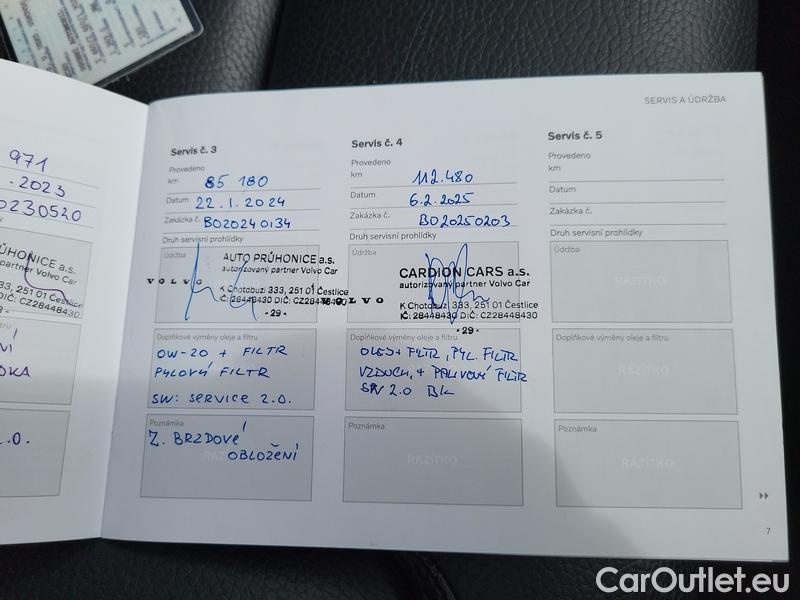 SERVIS A ÚDRŽBA
971
.2023
0230520
PRŮHONICE a.s.
partner Volvo Car
333, 251 01 Čestlice
DIČ: CZ28448430
Servis č. 3
Provedeno
km 85 180
Datum 22.1.2024
Zakázka č. BO20240134
Druh servisní prohlídky
Údržba
AUTO PRŮHONICE a.s.
autorizovaný partner Volvo Car
VOLVO
K Chotobuzi 333, 251 01 Čestlice
IČ: 28448430 DIČ: CZ28448430
-29-
Doplňkové výměny oleje a filtru
0W-20 + FILTR
PYLOVÝ FILTR
SW: SERVICE 2.0.
Poznámka
Z. BRZDOVÉ
OBLOŽENÍ
Servis č. 4
Provedeno
km 112.480
Datum 6.2.2025
Zakázka č. BO20250203
Druh servisní prohlídky
Údržba
CARDION CARS a.s.
autorizovaný partner Volvo Car
VOLVO
K Chotobuzi 333, 251 01 Čestlice
IČ: 28448430 DIČ: CZ28448430
-29-
Doplňkové výměny oleje a filtru
OLEJ + FILTR, PYL. FILTR
VZDUCH. + PALIVOVÝ FILTR
SW 2.0 BK
Poznámka
RAZÍTKO
Servis č. 5
Provedeno
km
Datum
Zakázka č.
Druh servisní prohlídky
Údržba
RAZÍTKO
Doplňkové výměny oleje a filtru
RAZÍTKO
Poznámka
RAZÍTKO
7
CarOutlet.eu